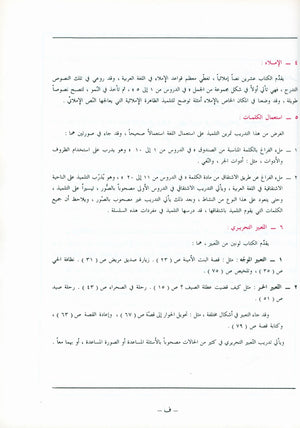 ٤ ــ الإملاء :
يقدّم الكتاب عشرين نصاً إملائياً ، تغطّي معظم قواعد الإملاء في اللغة العربية ، وقد روعي في تلك النصوص
التدرج ، فهي تأتي أولاً في شكل مجموعة من الجمل ( في الدروس من ١ إلى ٥ ) ، ثم تأخذ في النمو ، لتصبح نصوصاً
طويلة ، وقد وضعنا في المكان الخاص بالإملاء أمثلة توضح للتلميذ الظاهرة الإملائية التي يعالجها النصّ الإملائي .
٥ ــ استعمال الكلمات :
الغرض من هذا التدريب تمرين التلميذ على استعمال اللغة استعمالاً صحيحاً ، وقد جاء في صورتين هما :
١ ــ ملء الفراغ بالكلمة المناسبة من الصندوق ( في الدروس من ١ إلى ١٠ ) وهو يدرب على استخدام الظروف
والأدوات ، مثل : أدوات الجر ، والنفي .
٢ ــ ملء الفراغ عن طريق الاشتقاق من مادة الكلمة ( في الدروس من ١١ إلى ٢٠ ) ، وهو يُدرّب التلميذ على الناحية
الاشتقاقية في اللغة العربية ، ويأتي التدريب الاشتقاقي في الدروس الأولى مصحوباً بالصُّور ، تيسيراً على التلميذ ،
وحتى يتعود على هذا النوع من النشاط ، وبعد ذلك يأتي التدريب غير مصحوب بالصُّور ، ويلاحظ أن جميع
الكلمات التي يقوم التلميذ باشتقاقها ، قد درسها التلميذ في مفردات هذه السلسلة .
٦ ــ التعبير التحريري :
يقدّم الكتاب لونين من التعبير ، هما :
١ ــ التعبير الموجّه : مثل : قصة البنت الأمينة ص ( ٢٣ ) . زيارة صديق مريض ص ( ٣١ ) . نظافة الحي
ص ( ٣٥ ) ، وتلخيص ص ( ٧٥ ) .
٢ ــ التعبير الحر : مثل كيف قضيت عطلة الصيف ؟ ص ( ١٥ ) . رحلة في الصحراء ص ( ٤٣ ) . رحلة صيد
ص ( ٥١ ) .
وقد جاء التعبير في أشكال مختلفة ، مثل : تحويل الحوار إلى قصة ص ( ٦٧ ) ، وإعادة القصة ص ( ٦٣ ) ،
وكتابة قصة ص ( ٧٩ ) .
ويأتي تدريب التعبير التحريري في كثير من الحالات مصحوباً بالأسئلة المساعدة أو الصورة المساعدة ، أو بهما معاً .
ــ ف ــ